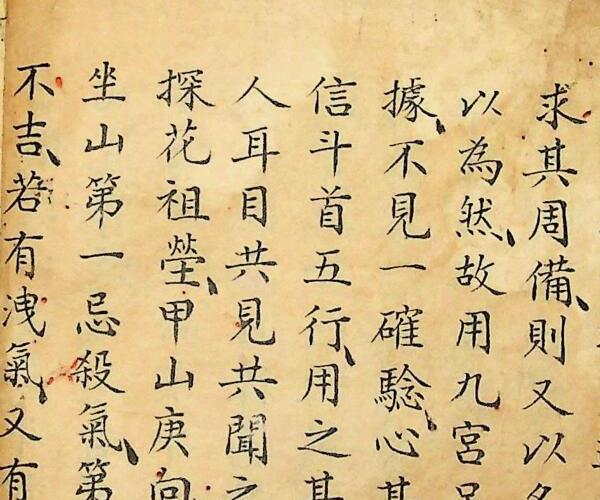 求其周備、則又以
以為然、故用九宮
據、不見一確騐、心
信斗首五行、用之
人耳目共見共聞之
探花祖塋、甲山庚向
坐山第一忌殺氣、第
不吉、若有洩氣、又有